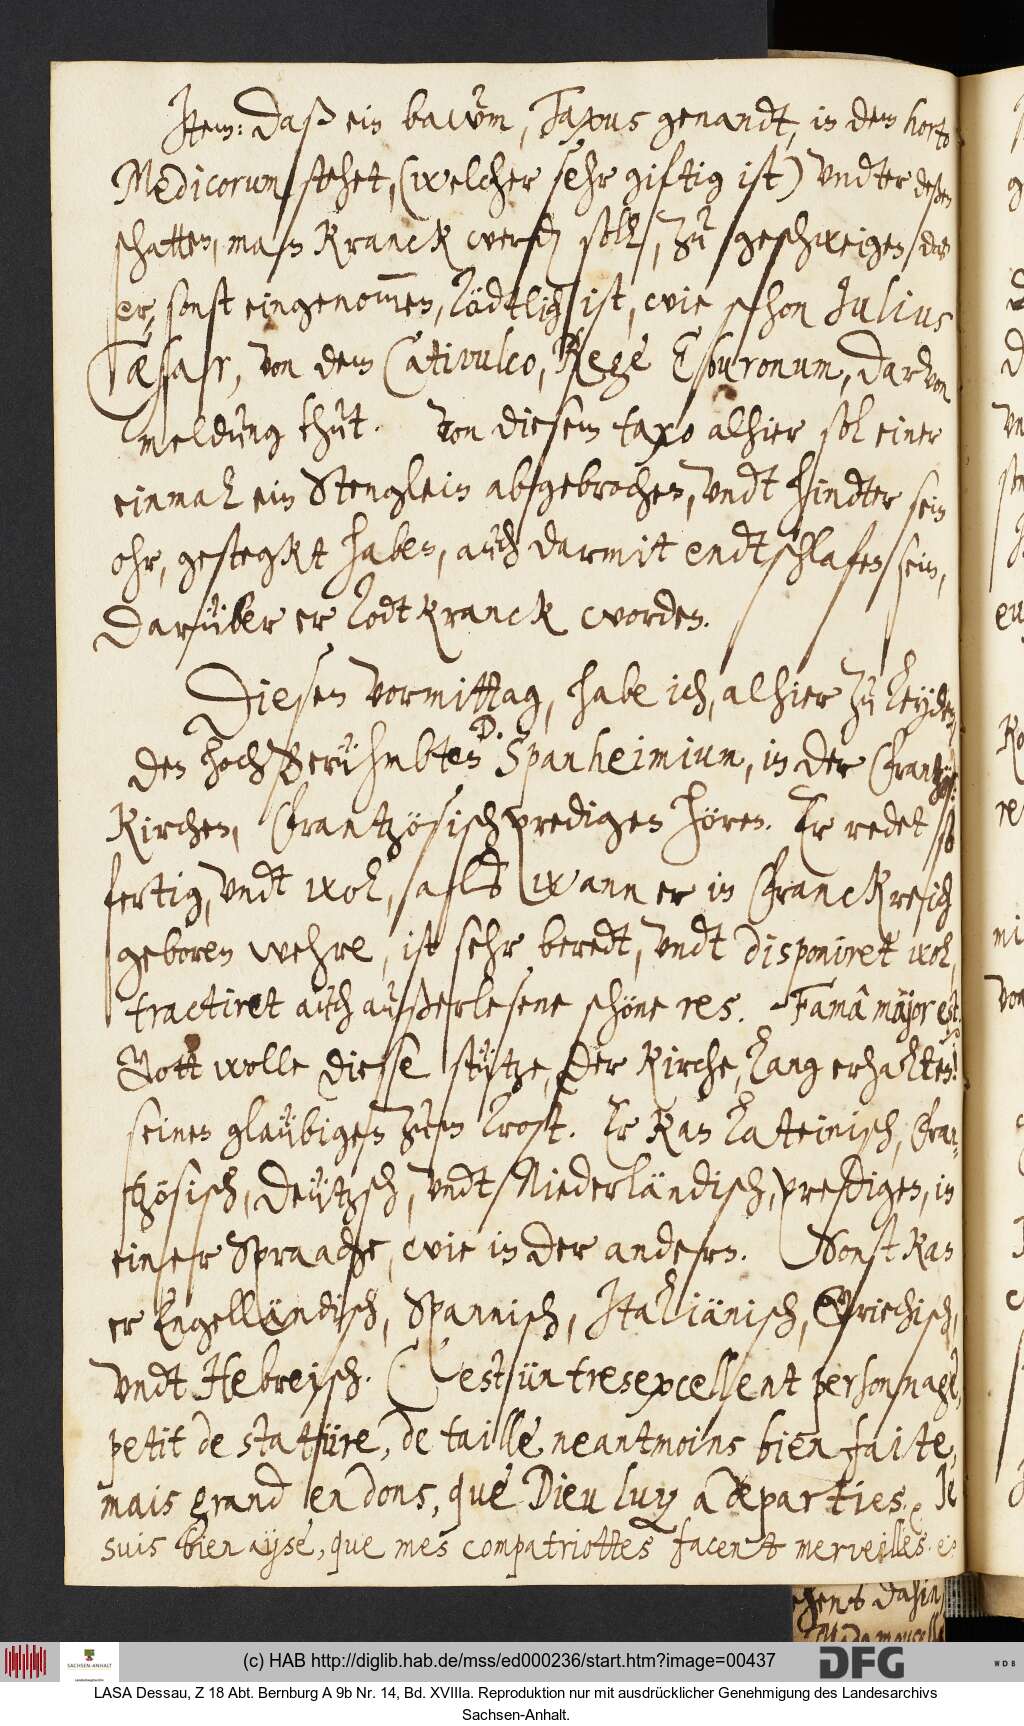 Item: Daß ein bawm, Taxus genandt, in dem horto
Medicorum stehet, (welcher sehr giftig ist) vndter deßen
schatten, man kranck werden soll, zu geschweigen, das
er, sonst eingenom̅en, tödtlich ist, wie schon Julius
Cæsar, von dem Cativulco, Rege Eburonum, darvon
meldung thut. Von diesem taxo alhier sol einer
einmal ein Stenglein abgebrochen, vndt hindter sein
ohr, gestegkt haben, auch darmit endtschlafen sein,
darüber er todtkranck worden.
Diesen vormittag, habe ich, alhier zu Leyden,
den hochberühmbten D. Spanheimium, in der Frantzös:
Kirchen, Frantzösisch predigen hören. Er redet so
fertig, vndt wol, alß wann er in Franckreich
geboren wehre, ist sehr beredt, vndt disponiret wol,
tractiret auch außerlesene schöne res. Famâ major est.
Gott wolle diese stütze, der Kirche, lang erhalten!
seinen glaübigen zum trost. Er kan Lateinisch, Fran-
tzösisch, Deützsch, vndt Niederländisch, predigen, in
einer Spraache, wie in der andern. Sonst kan
er Engelländisch, Spannisch, Italiänisch, Griechisch,
vndt Hebreisch. C'est ün tresexcellent personnage,
petit de statüre, de taille neantmoins bien faite,
mais grand en dons, que Dieu luy a departies. Je
suis bien aysé, que mes compatriottes facent merveilles.
(c) HAB http://diglib.hab.de/mss/ed000236/start.htm?image=00437
SACHSEN-ANHALT
DFG
WDB
LASA Dessau, Z 18 Abt. Bernburg A 9b Nr. 14, Bd. XVIIIa. Reproduktion nur mit ausdrücklicher Genehmigung des Landesarchivs
Sachsen-Anhalt.